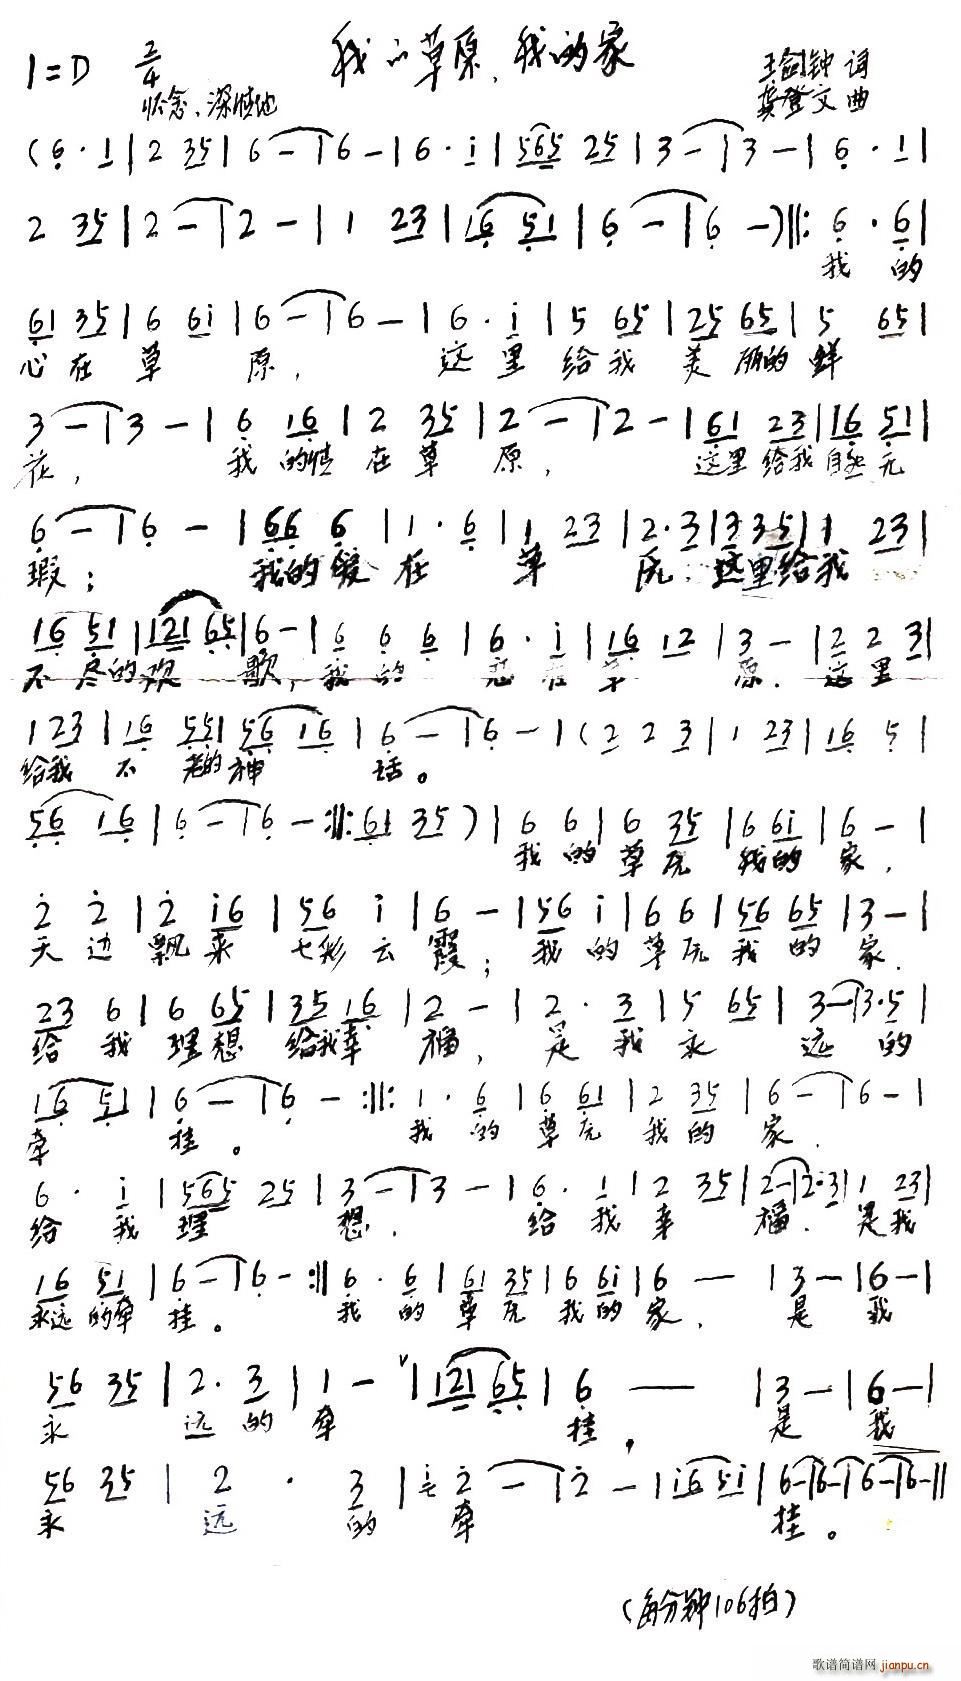 我的草原，我的家
1=D 2/4
王剑钟 词
怀念、深情地
龚登文 曲
(6 · 1 | 2 35 | 6 - | 6 - | 6 · i | 565 25 | 3 - | 3 - | 6 · 1 |
2 35 | 2 - | 2 - | 1 23 | 16 51 | 6 - | 6 -) ‖: 6 · 6 |
我 的
61 35 | 6 6i | 6 - | 6 - | 6 · i | 5 65 | 25 65 | 5 65 |
心 在 草 原， 这 里 给 我 美 丽的 鲜
3 - | 3 - | 6 16 | 2 35 | 2 - | 2 - | 61 23 | 16 51 |
花， 我 的情 在 草 原， 这里 给我 白玉 无
6 - | 6 - | 66 6 | 1 · 6 | 1 23 | 2 · 3 | 3 35 | 1 23 |
瑕； 我的 爱 在 草 原， 这里给我
16 51 | 121 65 | 6 - | 6 6 6 | 6 · i | 16 12 | 3 - | 2 2 3 |
不 尽的 欢 歌， 我 的 在 草 原． 这 里
1 23 | 16 55 | 56 16 | 6 - | 6 - | (2 2 3 | 1 23 | 16 5 |
给我 不 老的 神 话。
56 16 | 6 - | 6 - :‖: 61 35) | 6 6 | 6 35 | 6 6i | 6 - |
我 的 草 原 我的 家，
2 2 | 2 i6 | 56 i | 6 - | 56 i | 6 6 | 56 65 | 3 - |
天 边 飘 来 七彩 云 霞； 我 的 草 原 我 的 家．
23 6 | 6 65 | 35 16 | 2 - | 2 · 3 | 5 65 | 3 - | 3 · 5 |
给 我 理 想 给我 幸 福， 是 我 永 远 的
16 51 | 6 - | 6 - :‖: 1 · 6 | 6 61 | 2 35 | 6 - | 6 - |
牵 挂。 我 的 草 原 我 的 家．
6 · i | 565 25 | 3 - | 3 - | 6 · 1 | 2 35 | 2 - | 2 · 3 | 1 23 |
给 我 理 想． 给 我 幸 福． 是我
16 51 | 6 - | 6 - :‖ 6 · 6 | 61 35 | 6 6i | 6 — | 3 - | 6 - |
永远 的牵 挂。 我 的 草 原 我 的 家， 是 我
56 35 | 2 · 3 | 1 - | 121 65 | 6 — | 3 - | 6 - |
永 远 的 牵 挂， 是 我
56 35 | 2 · 3 | 2 - | 2 - | i6 5i | 6 - | 6 - | 6 - | 6 - ‖
永 远 的 牵 挂。
(每分钟106拍)
歌谱简谱网 jianpu.cn